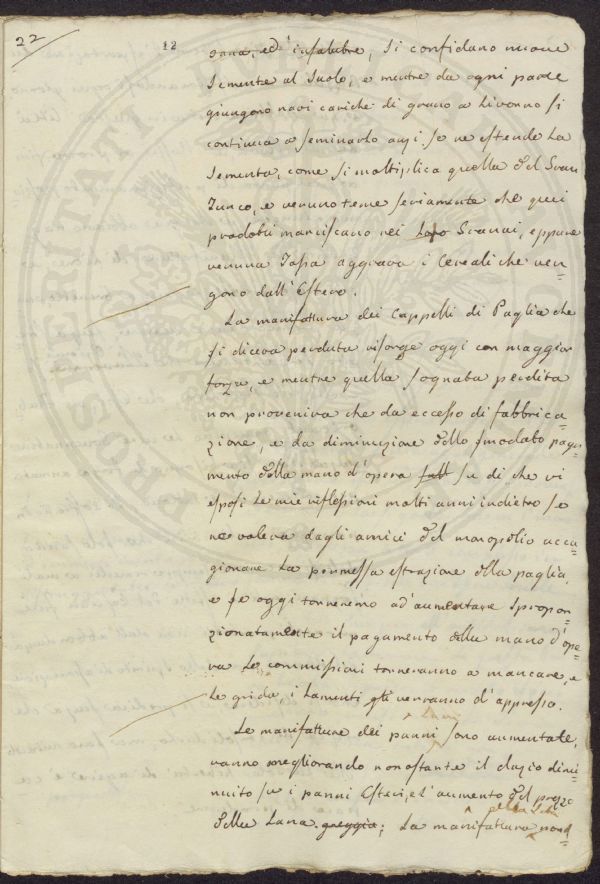 22
12
sana, ed' insalubre, si confidano nuove
semente al suolo, e mentre da ogni parte
giungono navi cariche di grano a Livorno si
continua a seminarlo anzi se ne estende la
sementa, come si moltiplica quella del Gran
Turco, e veruno teme seriamente che quei
prodotti marciscano nei loro Granai, eppure
veruna Tassa aggrava i Cereali che ven=
gono dall'Estero.
La manifattura dei Cappelli di Paglia che
si diceva perduta risorge oggi con maggior
forza, e mentre quella sognata perdita
non proveniva che da eccesso di fabbrica=
zione, e da diminuzione dello smodato paga=
mento della mano d'opera su di che vi
esposi le mie riflessioni molti anni indietro se
ne voleva dagli amici del monopolio acca=
gionare la permessa estrazione della paglia,
e se oggi torneremo ad' aumentare spropor=
zionatamente il pagamento della mano d'ope=
ra le commissioni torneranno a mancare, e
le grida i lamenti gli verranno d'appresso.
Le manifatture dei panni sono aumentate,
vanno megliorando nonostante il dazio dimi=
nuito su i panni Esteri, e l'aumento del prezzo
della Lana greggia; La manifattura
della Seta